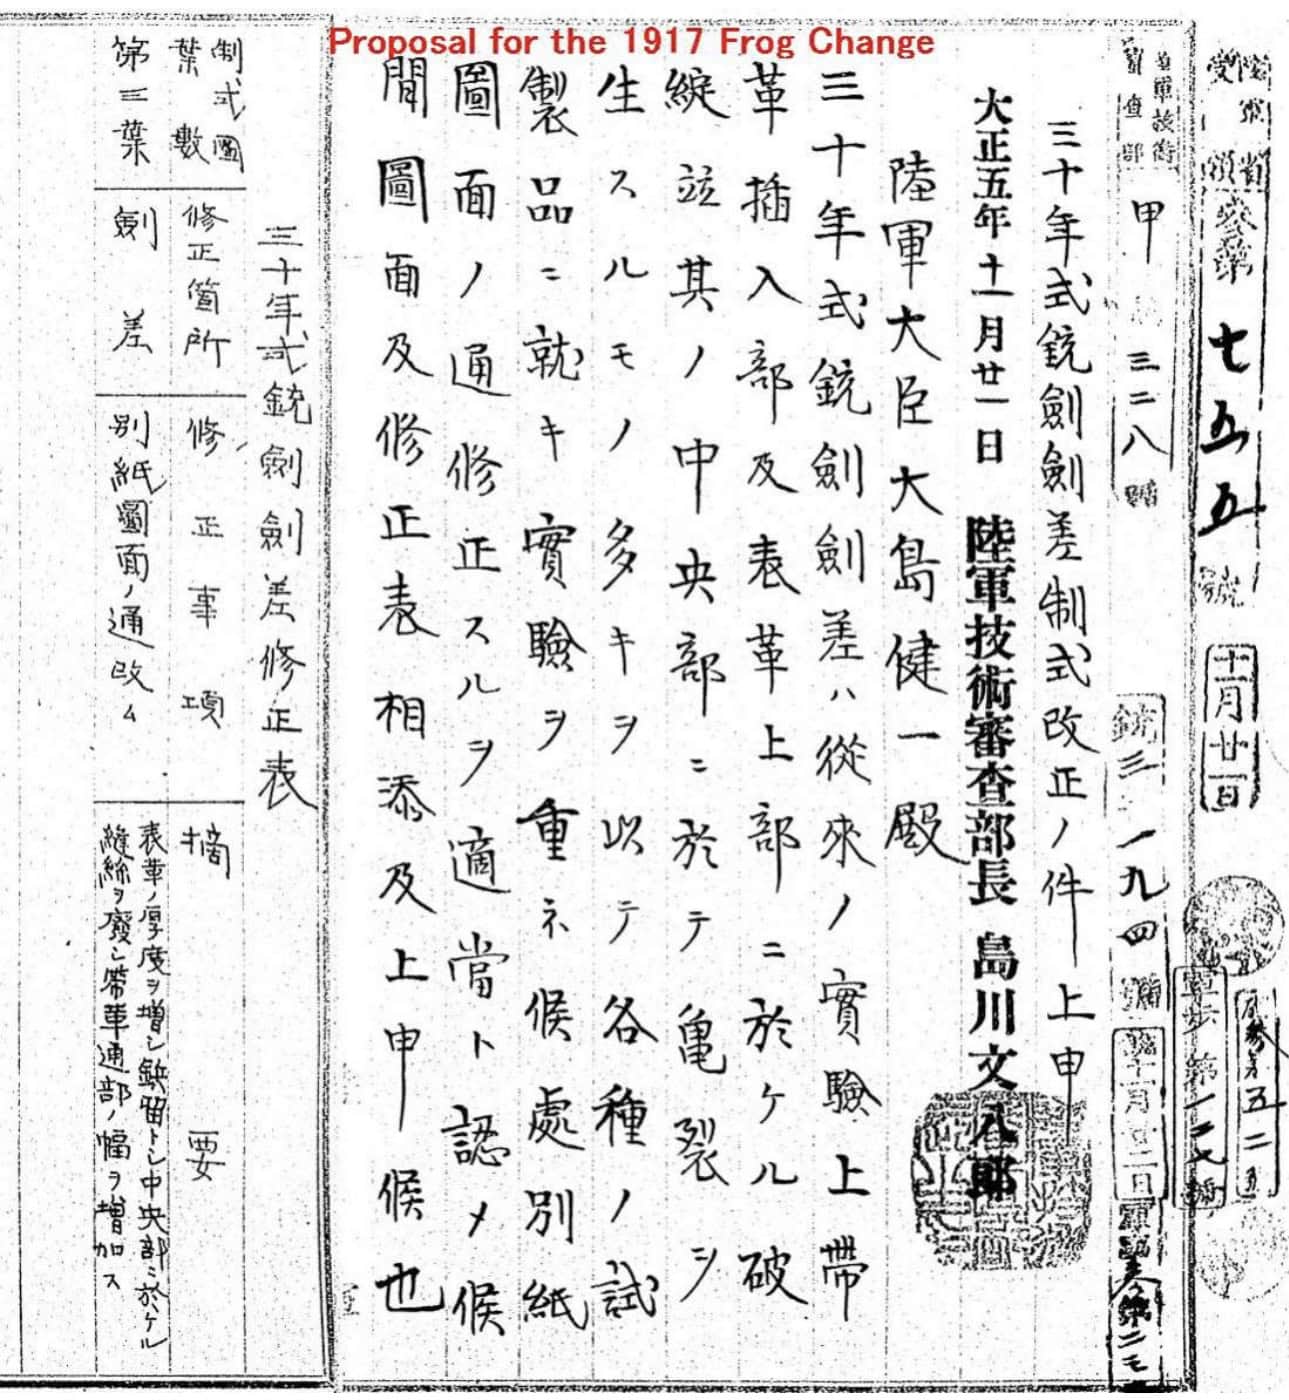 Proposal for the 1917 Frog Change
七五五號
十一月廿一日
甲
三二八號
一九四
三十年式銃劍劍差制式改正ノ件上申
大正五年十一月廿一日 陸軍技術審査部長 島川文八郎
陸軍大臣大島健一殿
三十年式銃劍劍差ハ從來ノ實驗上帶
革插入部及表革上部ニ於ケル破
綻竝其ノ中央部ニ於テ亀裂ヲ
生スルモノ多キヲ以テ各種ノ試
製品ニ就キ實驗ヲ重ネ候處別紙
圖面ノ通修正スルヲ適當ト認メ候
間圖面及修正表相添及上申候也
三十年式銃劍劍差修正表
制式圖葉數 修正箇所 修正事項 摘要
第二葉 劍差 別紙圖面ノ通改ム 表革ノ厚度ヲ增シ鋲留トシ中央部ニ於ケル
縫絲ヲ廢シ帶革通部ノ幅ヲ増加ス